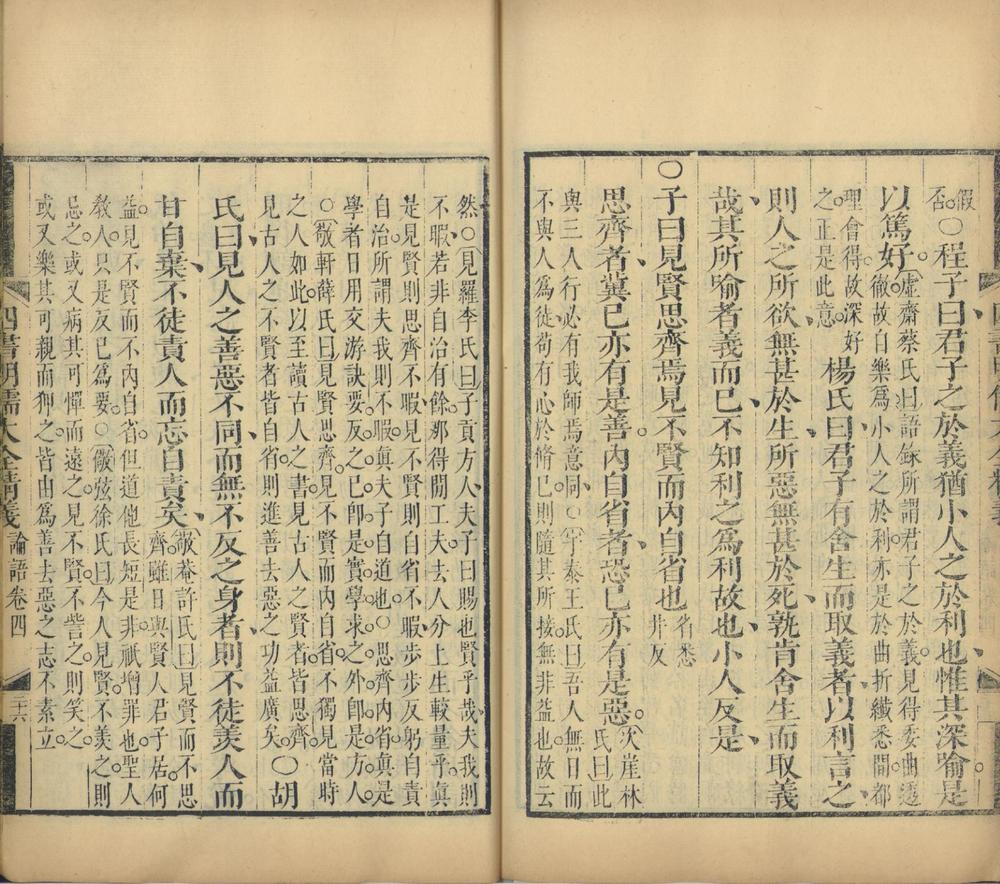 假
否○程子曰君子之於義猶小人之於利也惟其深喻是
以篤好
虛齋蔡氏曰語錄所謂君子之於義見得委曲透
徹故自樂爲小人之於利亦是於曲折纖悉間都
理會得故深好
之正是此意
楊氏曰君子有舍生而取義者以利言之
則人之所欲無甚於生所惡無甚於死孰肯舍生而取義
哉其所喻者義而已不知利之爲利故也小人反是
○子曰見賢思齊焉見不賢而內自省也
省悉
井反
思齊者冀已亦有是善內自省者恐已亦有是惡
次崖林
氏曰此
與三人行必有我師焉意同○宇泰王氏曰吾人無日而
不與人爲徒苟有心於脩已則隨其所接無非益也故云
然○見羅李氏曰子貢方人夫子曰賜也賢乎哉夫我則
不暇若非自治有餘那得閒工夫去人分上生較量乎眞
是見賢則思齊不暇見不賢則自省不暇步步反躬自責
自治所謂夫我則不暇眞夫子自道也○思齊內省眞是
學者日用交游訣要反之已卽是實學求之外卽是方人
○敬軒薛氏曰見賢思齊見不賢而內自省不獨見當時
之人如此以至讀古人之書見古人之賢者皆思齊
見古人之不賢者皆自省則進善去惡之功益廣矣
○胡
氏曰見人之善惡不同而無不反之身者則不徒羡人而
甘自棄不徒責人而忘自責矣
敬菴許氏曰見賢而不思
齊雖日與賢人君子居何
益見不賢而不內自省但道他長短是非祇增罪也聖人
教人只是反已爲要○儆弦徐氏曰今人見賢不羡之則
忌之或又病其可憚而遠之見不賢不訾之則笑之
或又樂其可親而狎之皆由爲善去惡之志不素立
四書明儒大全精義
論語卷四
二十六